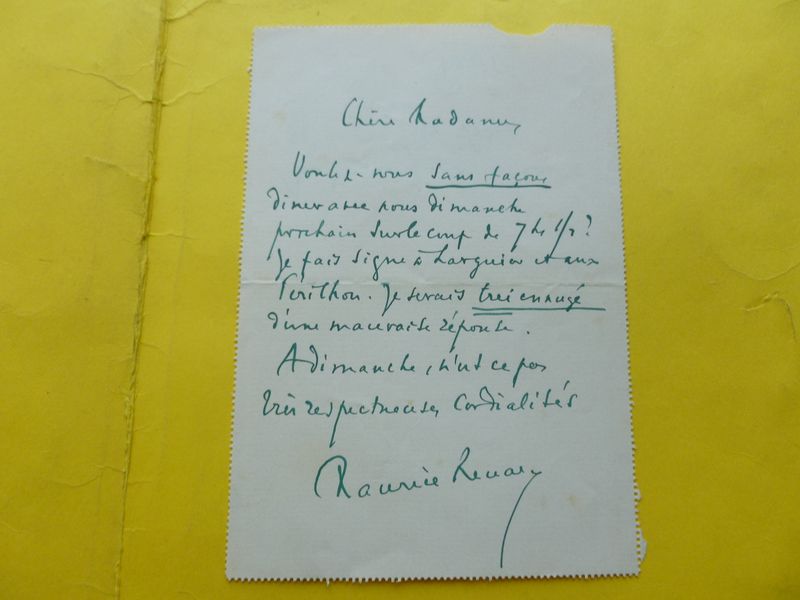 Chère Madame,
Voulez-vous sans façons
diner avec nous dimanche
prochain sur le coup de 7 hs 1/2 ?
Je fais signe à Larguier et aux
Périlhon. Je serais très ennuyé
d'une mauvaise réponse.
A dimanche, n'est ce pas
Très respectueuses cordialités
Maurice Renard